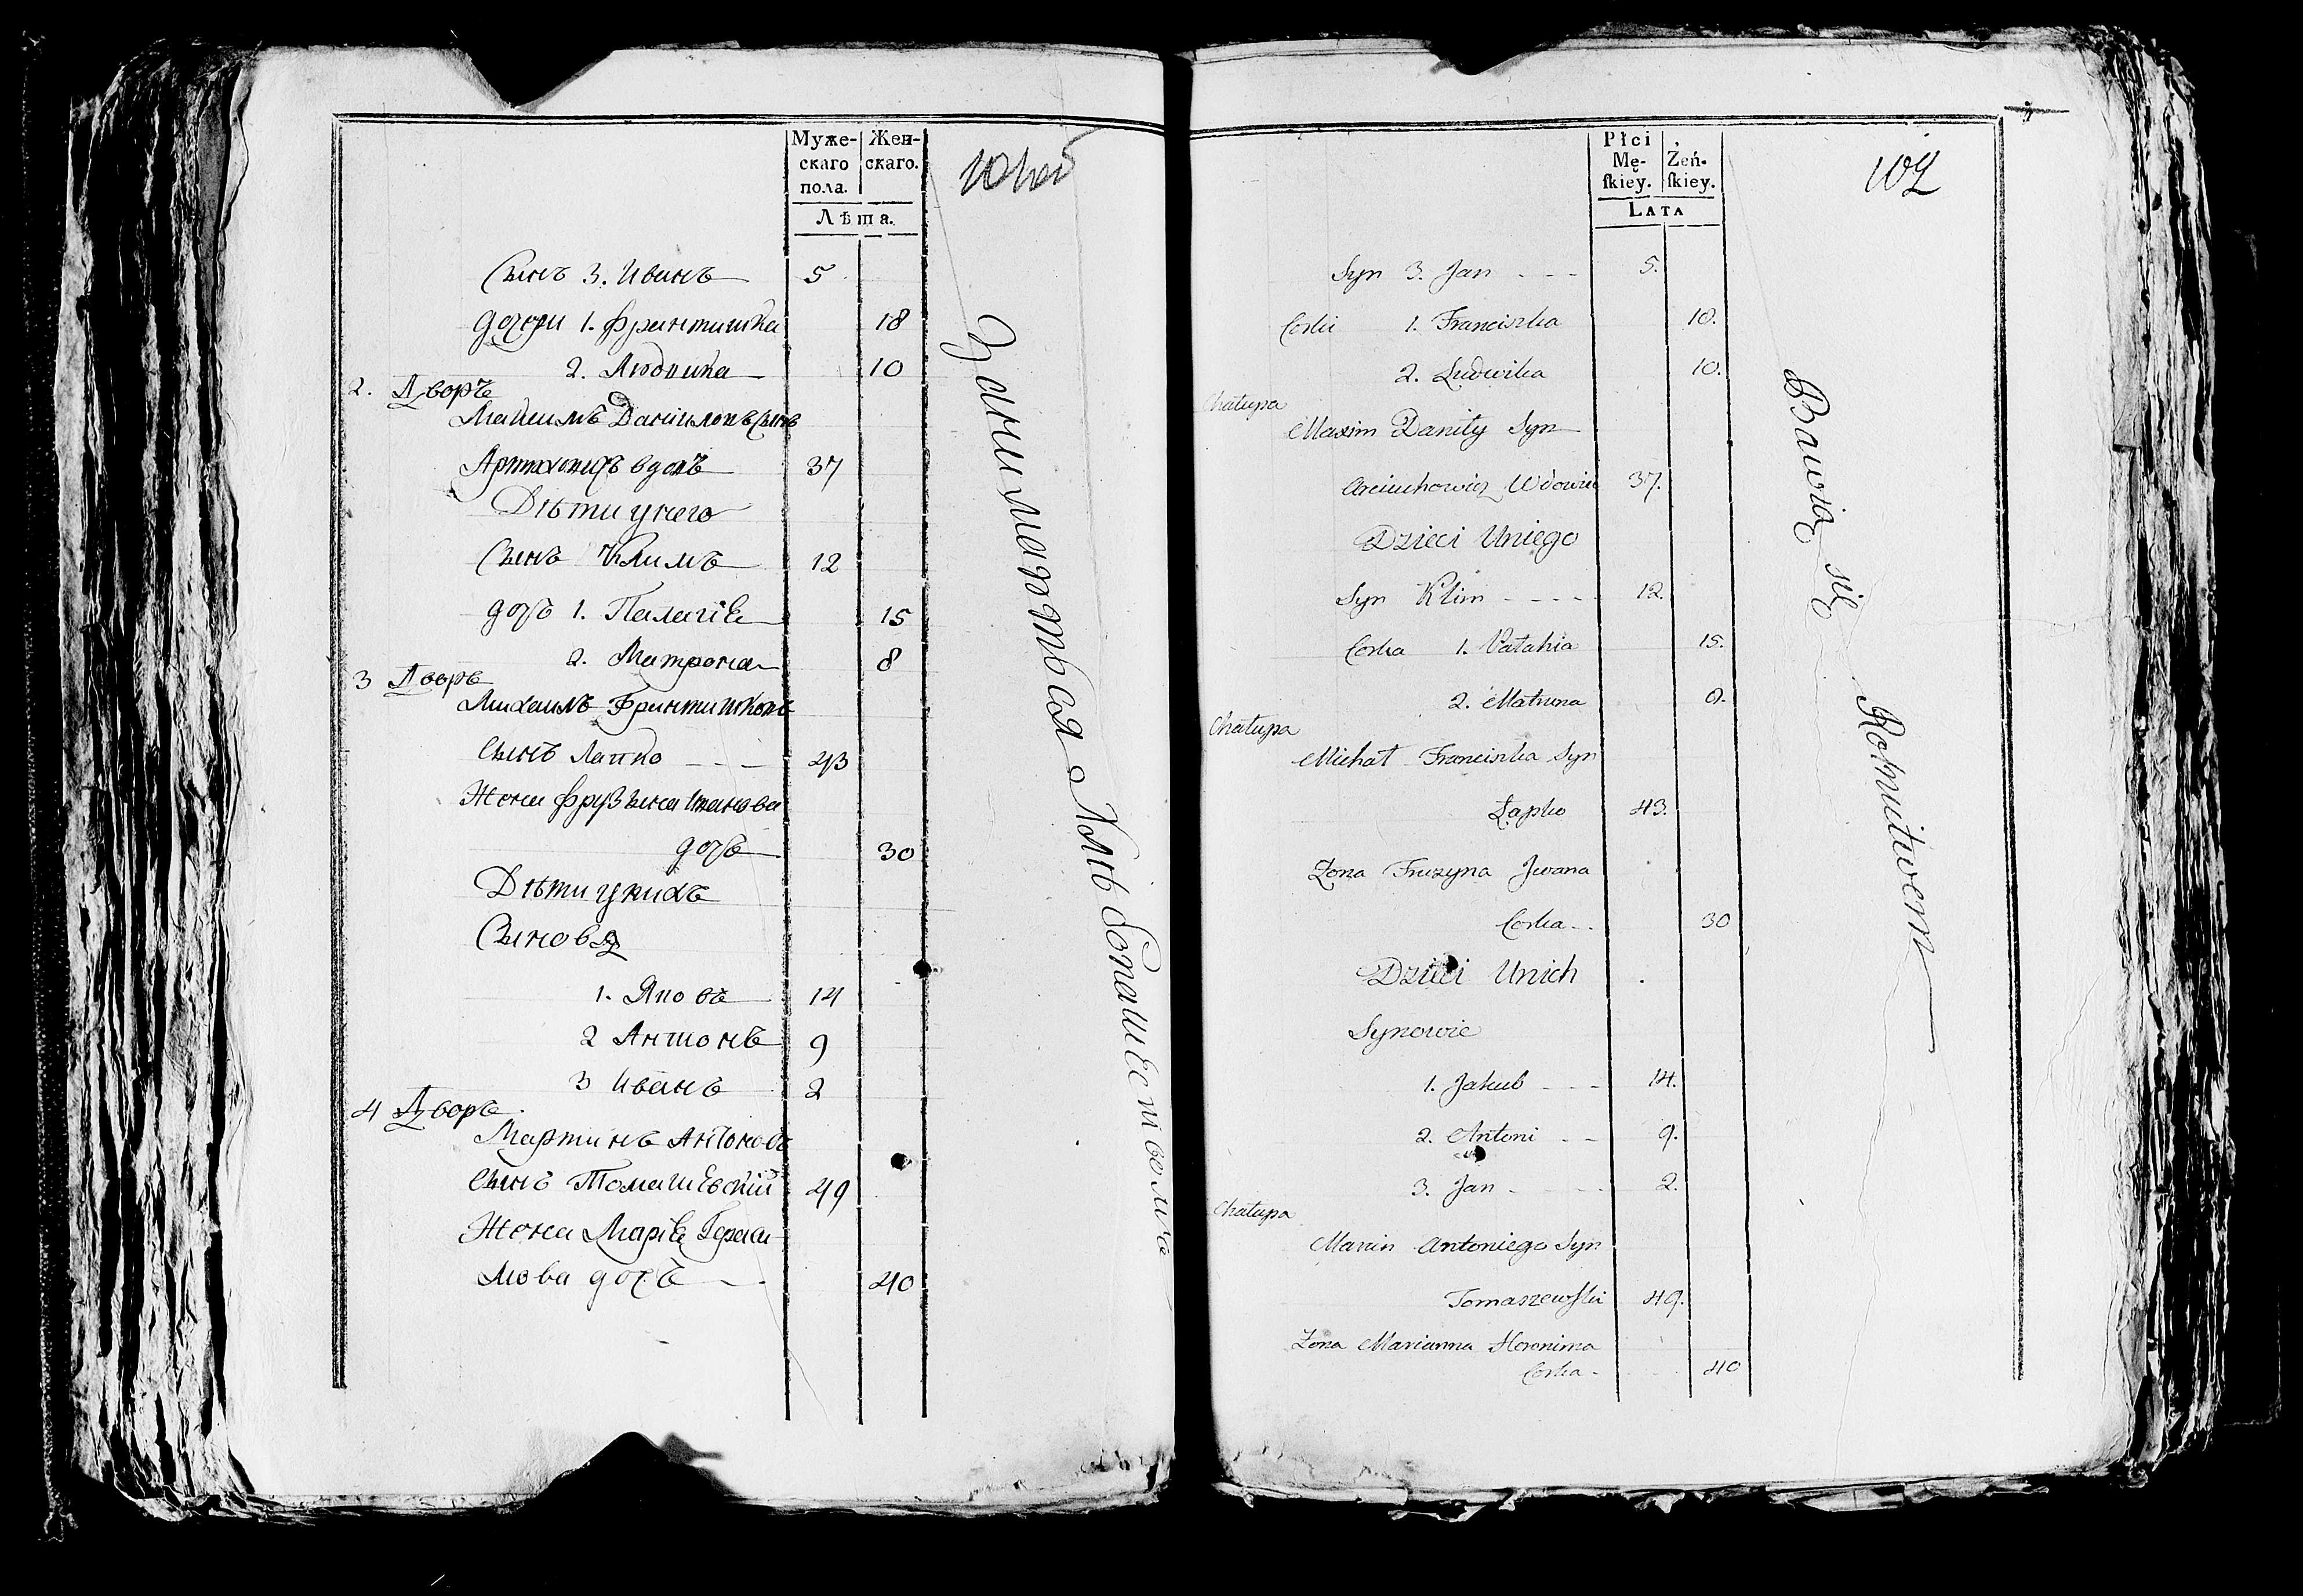 Муже-
скаго
пола.
Жен-
скаго.
Лѣта.
Сынъ 3. Иванъ 5
дочери 1. Францишка 18
2. Людвика 10
2. Дворъ
Максимъ Даниловъ Сынъ
Артюховичъ вдовъ 37
Дѣти у него
Сынъ Климъ 12
дочь 1. Палагія 15
2. Матрона 8
3 Дворъ
Михаилъ Францишковъ
Сынъ Лапко 43
Жена Фрузына Иванова
дочь 30
Дѣти у нихъ
Сыновья
1. Яковъ 14
2 Антонъ 9
3 Иванъ 2
4 Дворъ
Мартинъ Антоновъ
Сынъ Томашевскій 49
Жена Марія Герани-
мова дочь 40
Занимаются Хлѣбопашествомъ
Płci
Mę-
ſkiey.
Żeń-
ſkiey.
LATA
102
Syn 3. Jan 5.
Corki 1. Franciszka 10.
2. Ludwika 10.
Chałupa
Maxim Daniły Syn
Arciuchowicz Wdowiec 37.
Dzieci Uniego
Syn Klim 12.
Corka 1. Pałahia 15.
2. Matruna 8.
Chałupa
Michał Franciszka Syn
Łapko 43.
Żona Fruzyna Jwana
Corka 30
Dzieci Unich
Synowie
1. Jakub 14.
2. Antoni 9.
3. Jan 2.
Chałupa
Marcin Antoniego Syn
Tomaszewſki 49.
Żona Marianna Heronima
Corka 40
Bawią się Rolnictwem